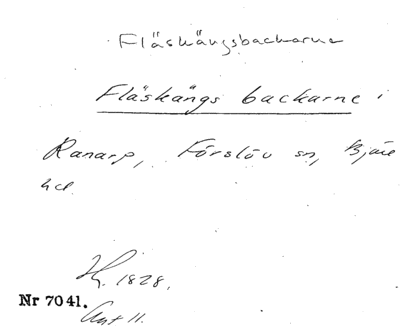 Fläskängsbackarne
Fläskängs backarne i
Ranarp, Förslöv sn, Bjäre
hd.
Hj. 1828.
Nr 7041.
Ant 11.